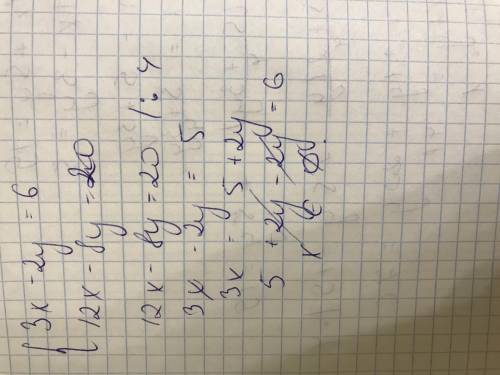 { 3x - 2y = 6
12x - 8y = 20
12x - 8y = 20 /:4
3x - 2y = 5
3x = 5 + 2y
5 + 2y - 2y = 6
x ∈ Ø.